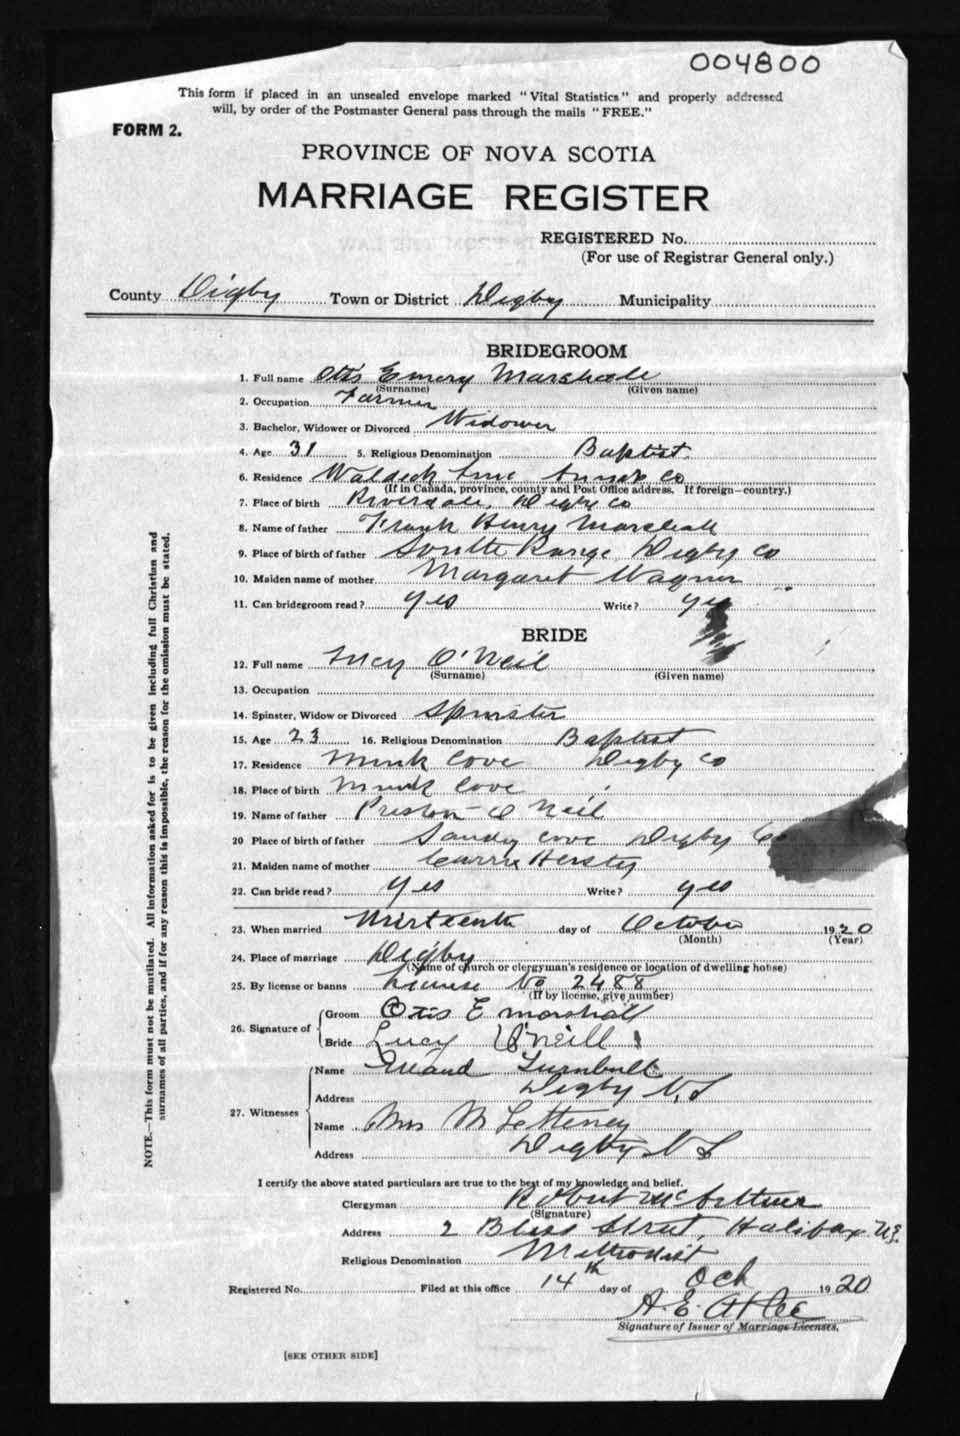 004800
This form if placed in an unsealed envelope marked "Vital Statistics" and properly addressed
will, by order of the Postmaster General pass through the mails "FREE."
FORM 2.
PROVINCE OF NOVA SCOTIA
MARRIAGE REGISTER
REGISTERED No.
(For use of Registrar General only.)
County Digby Town or District Digby Municipality
BRIDEGROOM
1. Full name Otis Emery Marshall
(Surname) (Given name)
2. Occupation Farmer
3. Bachelor, Widower or Divorced Widower
4. Age 31 5. Religious Denomination Baptist
6. Residence Waldeck Line Annap Co
(If in Canada, province, county and Post Office address. If foreign—country.)
7. Place of birth Riverdale, Digby Co
8. Name of father Frank Henry Marshall
9. Place of birth of father South Range Digby Co
10. Maiden name of mother Margaret Wagner
11. Can bridegroom read? yes Write? yes
BRIDE
12. Full name Lucy O'Neil
(Surname) (Given name)
13. Occupation
14. Spinster, Widow or Divorced Spinster
15. Age 23 16. Religious Denomination Baptist
17. Residence Mink Cove Digby Co
18. Place of birth Mink Cove
19. Name of father Preston O'Neil
20 Place of birth of father Sandy Cove Digby Co
21. Maiden name of mother Carrie Hersey
22. Can bride read? yes Write? yes
23. When married Thirteenth day of October 1920
(Month) (Year)
24. Place of marriage Digby
(Name of church or clergyman's residence or location of dwelling house)
25. By license or banns License No 2488
(If by license, give number)
26. Signature of Groom Otis E marshall
Bride Lucy O'neill
27. Witnesses Name Turnbull
Address Digby N.S
Name Mrs M Letteney
Address Digby N S
I certify the above stated particulars are true to the best of my knowledge and belief.
Clergyman Robert McArthur
(Signature)
Address 2 Bliss Street, Halifax N.S.
Religious Denomination Methodist
Registered No. Filed at this office 14th day of Oct 1920
A. E. Atlee
Signature of Issuer of Marriage Licenses.
[SEE OTHER SIDE]
NOTE.—This form must not be mutilated. All information asked for is to be given including full Christian and
surnames of all parties, and if for any reason this is impossible, the reason for the omission must be stated.